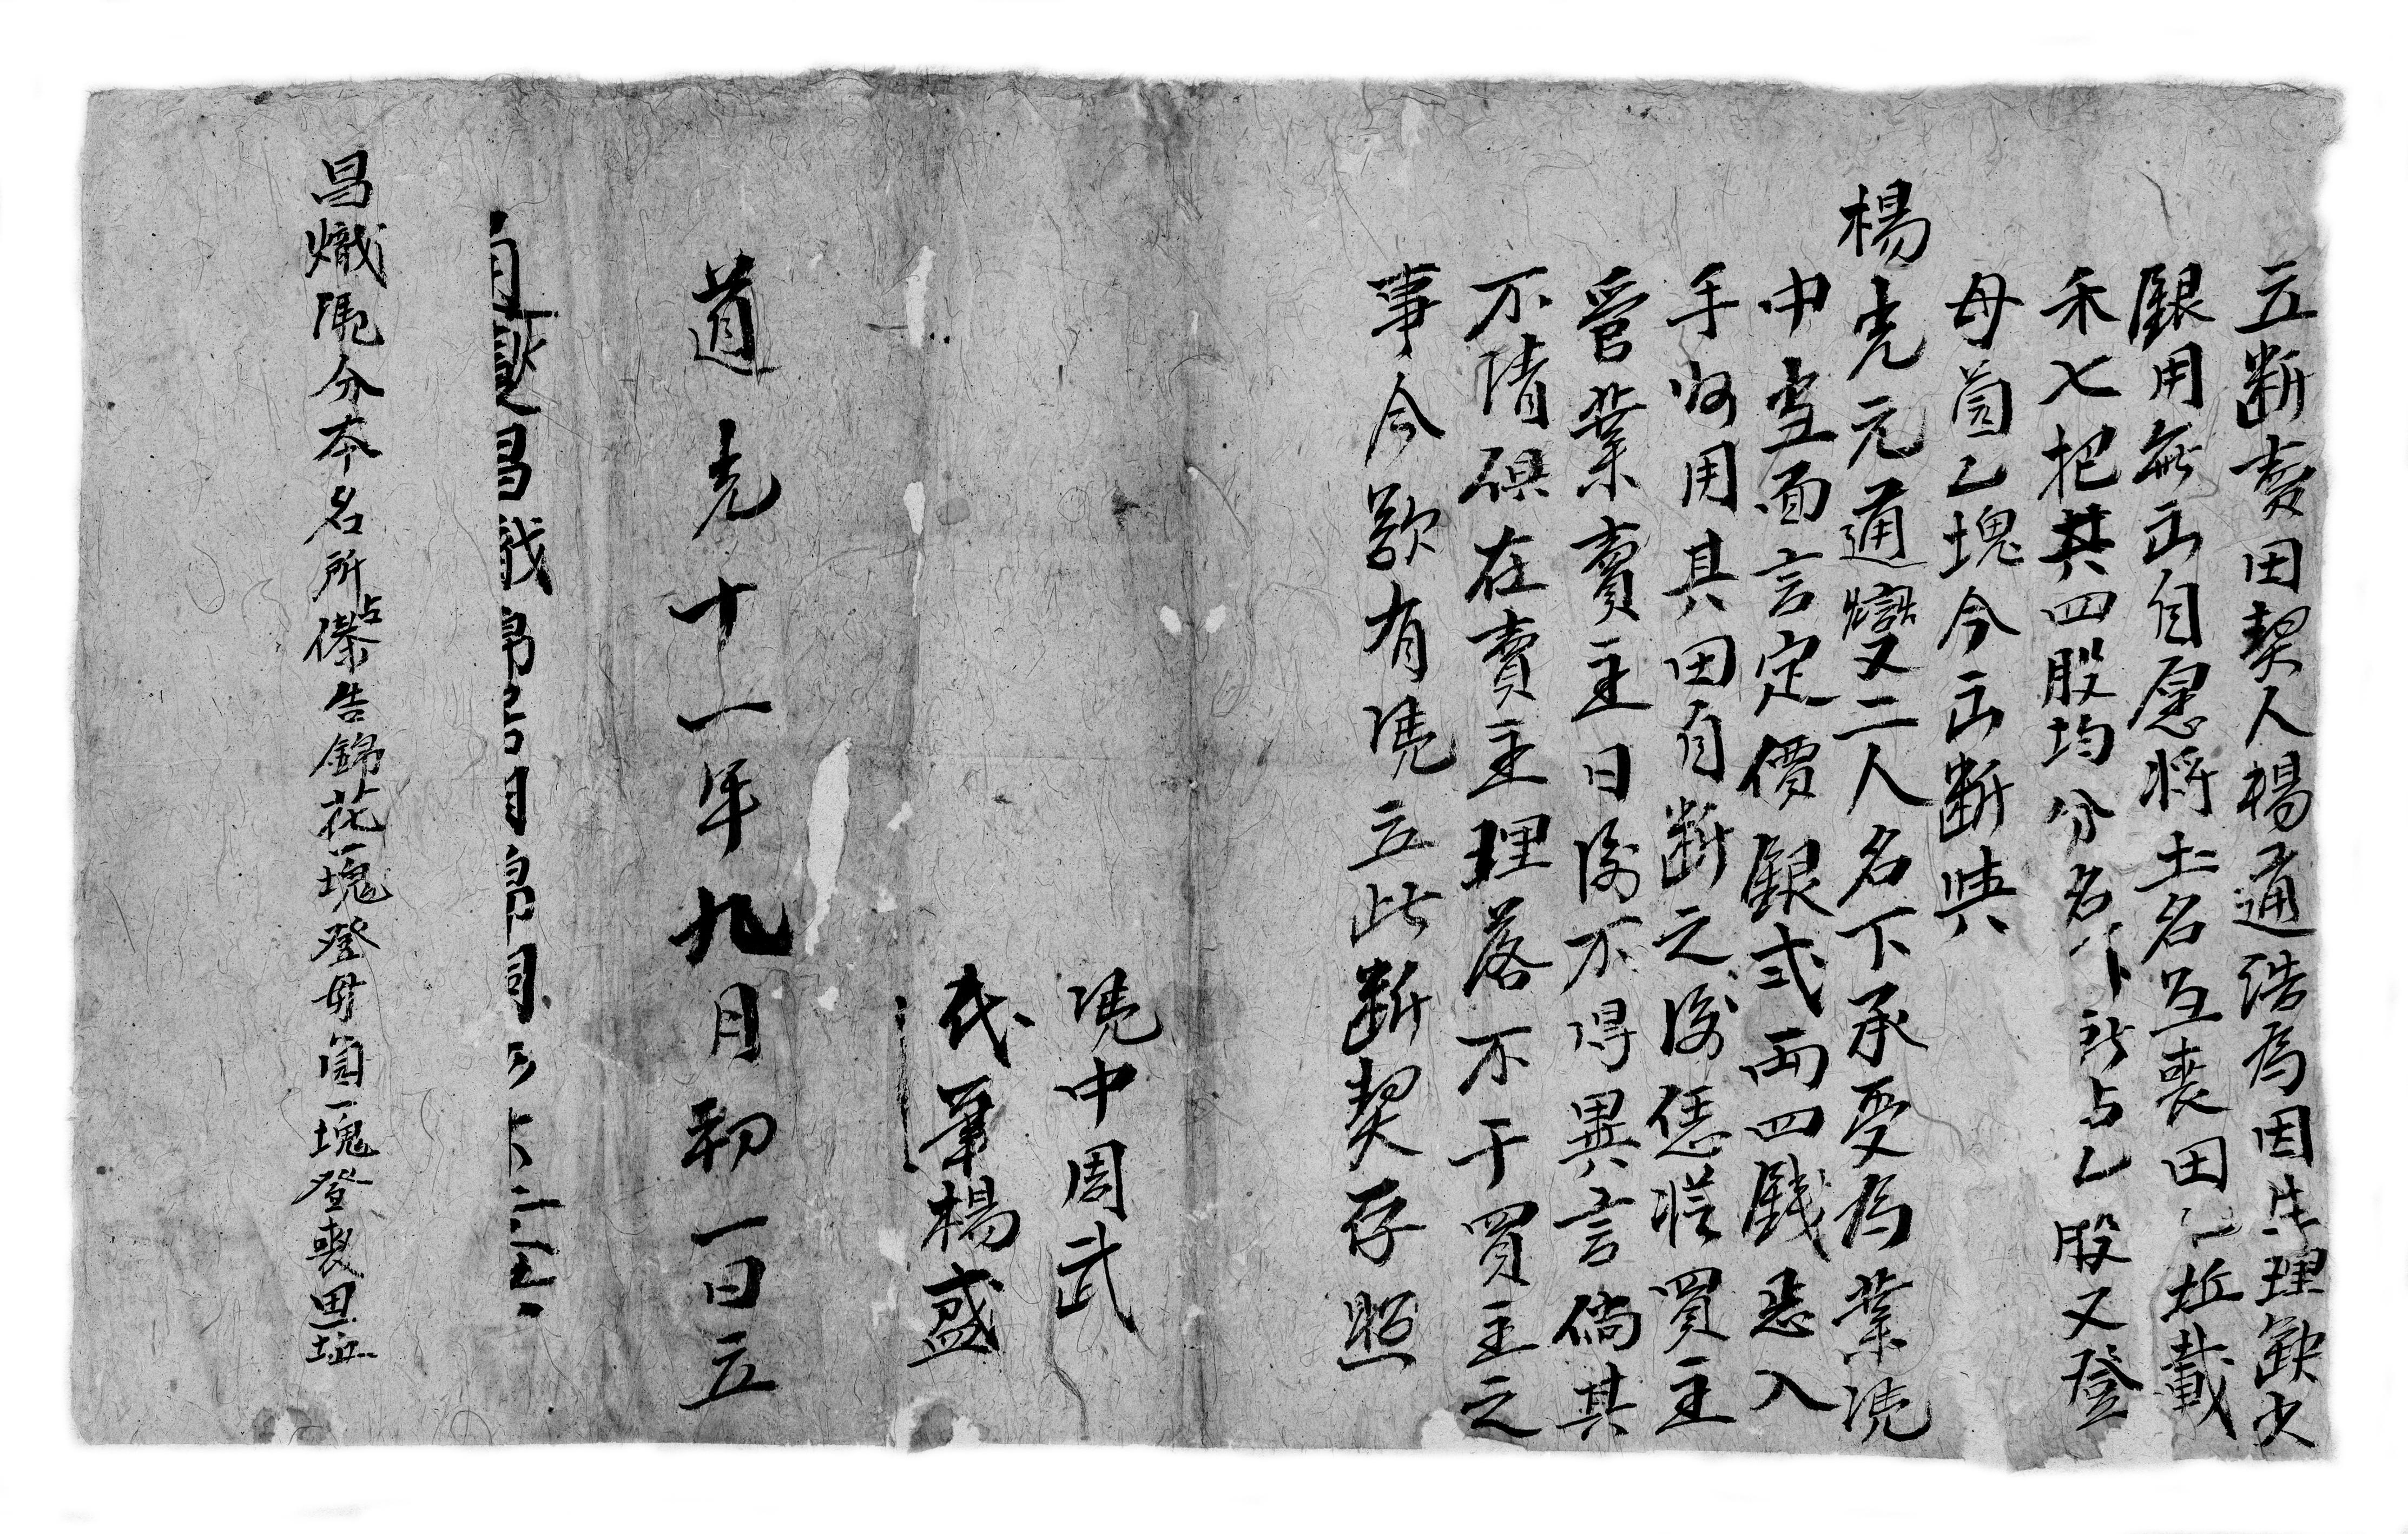 立断賣田契人楊通浩為因生理缺少
銀用無出自愿将土名互喪田乙坵載
禾七把其四股均分名下所占乙股又登
母園乙塊今出断與
楊光元通變二人名下承受為業凴
中當面言定價銀弍両四錢悉入
手收用其田自断之後恁從買主
管業賣主日後不得異言倘其
不清俱在賣主理落不干買主之
事今欲有凴立此断契存照
凴中周武
代筆楊盛
道光十一年九月初一日立
昌熾凴分本名所占告錦花一塊登母園一塊登喪田一坵